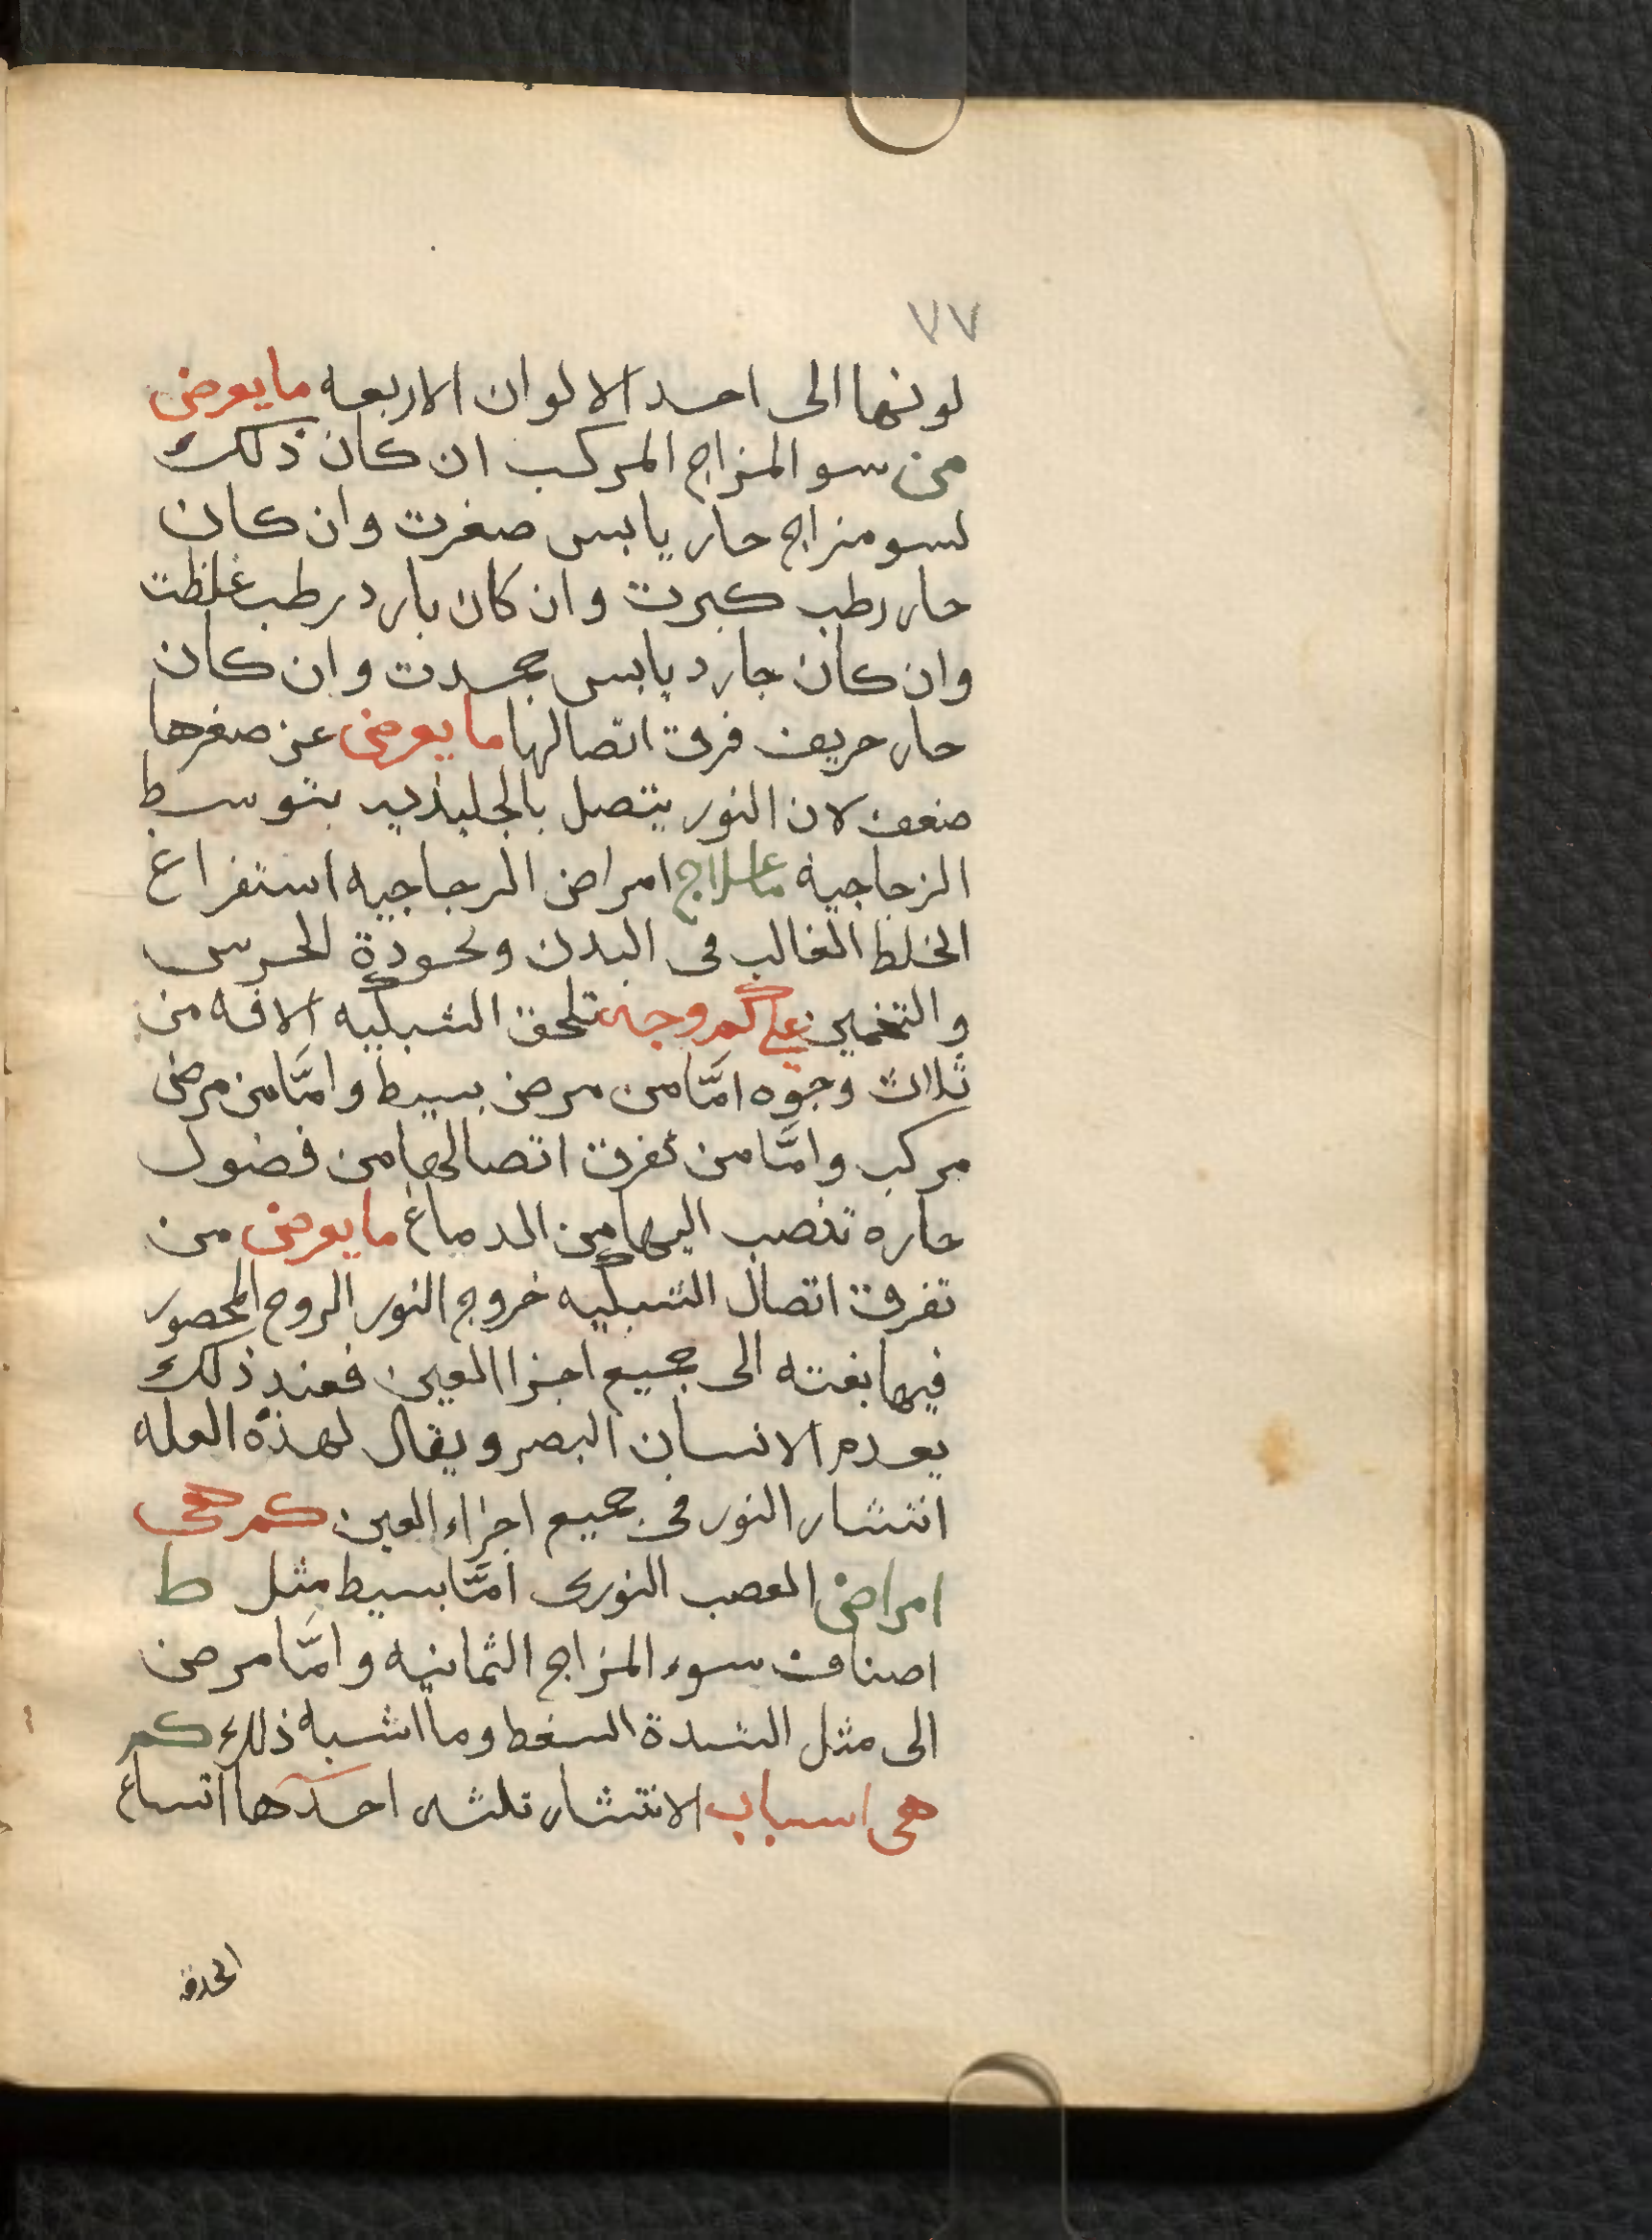 ٧٧
لونها الى احد الالوان الاربعه ما يعرض
من سو المزاج المركب ان كان ذلك
لسو مزاج حار يابس صغرت وان كان
حار رطب كبرت وان كان بارد رطب غلظت
وان كان جارد يابس جمدت وان كان
حار حريف فرق اتصالها ما يعرض عن صغرها
ضعف لان النور يتصل بالجليديه بتوسط
الزجاجية ما علاج امراض الزجاجيه استفراغ
الخلط الغالب فى البدن وبحودة الحرس
والتخمين على كم وجه تلحق الشبكيه الافه من
ثلاث وجوه امَّا من مرض بسيط وامَّا من مرض
مركب وامَّا من تفرق اتصالها من فضول
حاره تنصب اليها من الدماغ ما يعرض من
تفرق اتصال الشبكيه خروج النور الروح المحصور
فيها بغته الى جميع اجزا العين فعند ذلك
يعدم الانسان البصر ويقال لهذه العله
انتشار النور فى جميع اجزاء العين كم هى
امراض العصب النورى امَّا بسيط مثل ط
اصناف سوء المزاج الثمانيه وامَّا مرض
الى مثل الشدة السغط وما اشبه ذلك كم
هى اسباب الانتشار ثلثه احدها اتساع
الحدقه